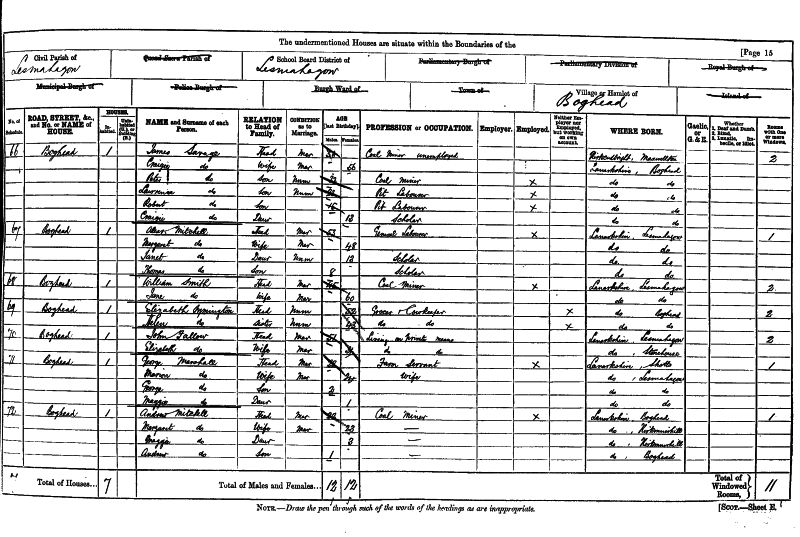 The undermentioned Houses are situate within the Boundaries of the
[Page 15
Civil Parish of Quoad Sacra Parish of School Board District of Parliamentary Burgh of Parliamentary Division of Royal Burgh of
Lesmahagow Lesmahagow
Municipal Burgh of Police Burgh of Burgh Ward of Town of Village or Hamlet of Island of
Boghead
No. of Schedule. ROAD, STREET, &c., and No. or NAME of HOUSE. HOUSES. Inhabited. NAME and Surname of each Person. RELATION to Head of Family. CONDITION as to Marriage. AGE [last Birthday]. Males Females PROFESSION or OCCUPATION. Employer. Employed. Neither Employer nor Employed, but working on own account. WHERE BORN. Gaelic, or G. & E. Whether 1. Deaf and Dumb. 2. Blind. 3. Lunatic, Imbecile, or Idiot. Rooms with One or more Windows.
66 Boghead 1 James Savage Head Mar Coal Miner unemployed 2
do Wife Mar 56 Lanarkshire, Boghead
Peter do Son Unm Coal Miner x do do
Lawrence do Son Unm Pit Labourer x do do
Robert do Son Pit Labourer x do do
do Daur 12 Scholar do do
67 Boghead 1 Mitchell Head Mar General Labourer x Lanarkshire, Lesmahagow 1
Margaret do Wife Mar 48 do do
Janet do Daur Unm 12 Scholar do do
Thomas do Son 8 Scholar do do
68 Boghead 1 William Smith Head Mar Coal Miner x Lanarkshire, Lesmahagow 2
Jane do Wife Mar 60 do do
69 Boghead 1 Elizabeth Symington Head Unm Grocer & Cowkeeper x do Boghead 2
Helen do Sister Unm do do x do do
70 Boghead 1 John Head Mar Living on Private means Lanarkshire, Lesmahagow 2
Elizabeth do Wife Mar do do do Stonehouse
71 Boghead 1 George Marshall Head Mar Farm Servant x Lanarkshire, Shotts 1
Marion do Wife Mar 24 Wife do, Lesmahagow
George do Son 2 do do
Maggie do Daur 1 do do
72 Boghead 1 Andrew Mitchell Head Mar 22 Coal Miner x Lanarkshire, Boghead 1
Margaret do Wife Mar 23 — do,
Maggie do Daur 3 — do,
Andrew do Son 1 — do, Boghead
Total of Houses... 7 Total of Males and Females... 12 12 Total of Windowed Rooms, 11
NOTE.—Draw the pen through such of the words of the headings as are inappropriate.
[SCOT.—Sheet E.